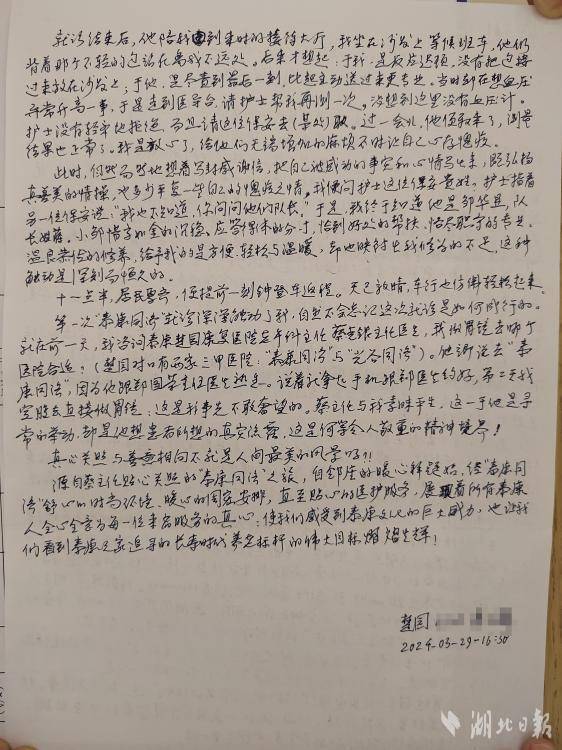 就诊结束后，他陪我回到来时的接待大厅，我坐在沙发上等候班车，他们
背着那个不轻的包站在离我不远处。后来才想起，于我，是反应迟顿，没有把包接
过来放在沙发上；于他，是尽责到最后一刻，比起主动送过来更专业。当时刻在想血压
异常升高一事，于是走到医导台，请护士帮我再测一次。没想到这里没有血压计。
护士没有轻率地拒绝，而且请这位保安去（某处）取。过一会儿，他便取来了，测量
结果也正常了。我是放心了，给他们无端增加的麻烦不时让自己心存愧疚。
此时，自然而然地想着写封感谢信，把自己被感动的事实和心情写出来，既弘扬
真善美的情操，也多少平复一些自己的愧疚之情。我便问护士这位保安贵姓。护士指着
另一位保安说，“我也不知道，你问问他们队长。”于是，我终于知道他是邹华县，队
长。小邹惜言如金的沉稳，应答得体的分寸，恰到好处的帮扶，恪尽职守的专业，
温良恭俭的修养，给予我的是方便、轻松与温暖，却也映射出我修为的不足，这种
触动是深刻而恒久的。
十一点半，居民要齐，便提前一刻钟登车返程。天已放晴，车行也仿佛轻松起来。
第一次“泰康同济”就诊深深触动了我，自然不会忘记这次就诊是如何成行的。
就在前一天，我咨询泰康楚园康复医院老年科主任蔡主任医生，我做胃镜去哪个
医院合适？（楚园对口有两家三甲医院：“泰康同济”与“光谷同济”）。他渐说去“泰
康同济”，因为他跟那国荣主任医生熟悉。说着就拿起手机跟那医生约好，第二天我
空腹去直接做胃镜：这是我事先不敢奢望的。蔡主任与我素昧平生，这一于他是寻
常的举动，却是他想患者所想的真实流露，这是何等令人敬重的精神境界！
真心关照与善意相向不就是人间最美的风景吗?!
源自蔡主任贴心关照的“泰康同济”之旅，自邹队的暖心伴随始，经“泰康同
济”舒心的时尚环境、暖心的周密安排，直至贴心的医护服务，展现着所有泰康
人全心全意为每一位来者服务的真心：使我们感受到泰康文化的巨大威力，也让我
们看到泰康之家追寻的长寿时代养老标杆的伟大目标熠熠生辉！
楚园
2024-03-29-16:50
湖北日报